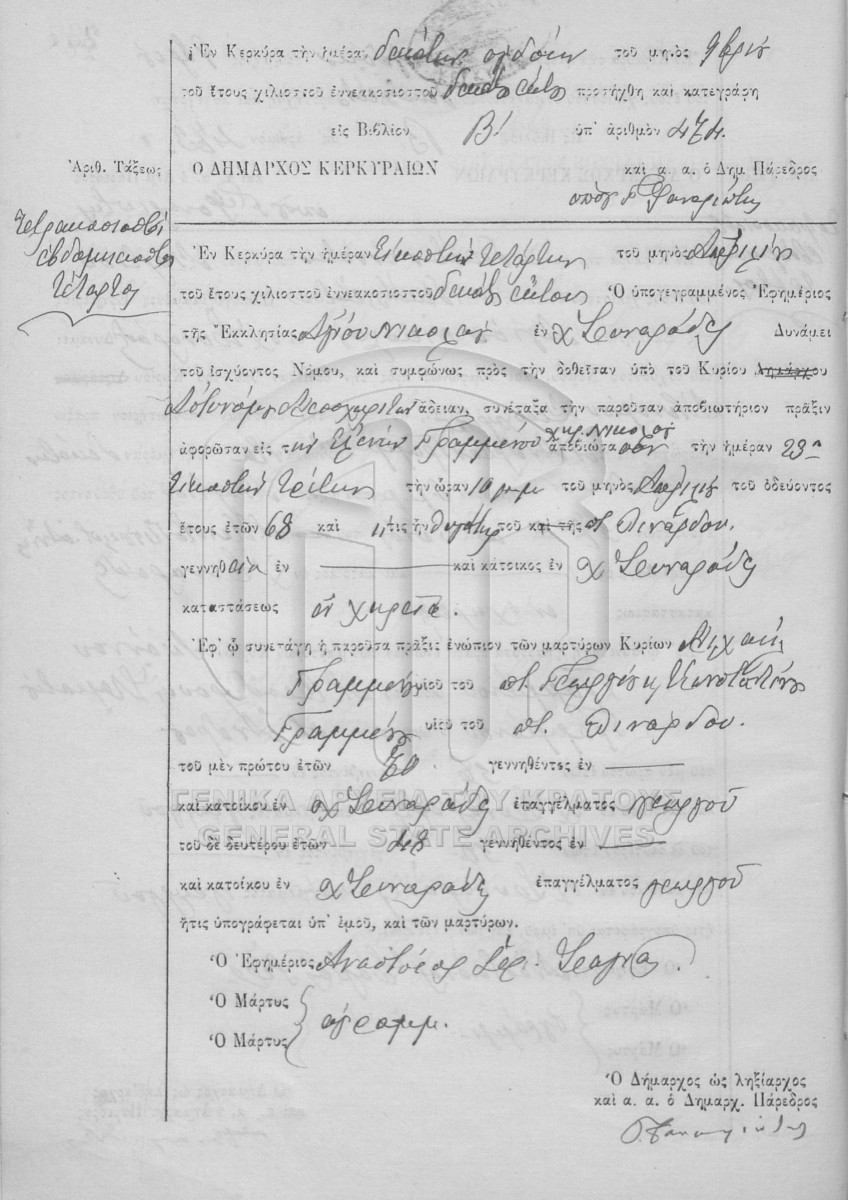 Ἐν Κερκύρᾳ τὴν ἡμέραν δεκάτην ὀγδόην τοῦ μηνὸς 9βρίου
τοῦ ἔτους χιλιοστοῦ ἐννεακοσιοστοῦ δεκάτου ἕκτου προσήχθη καὶ κατεγράφη
εἰς Βιβλίον Β' ὑπ' ἀριθμὸν 474.
Ἀριθ. Τάξεως Ο ΔΗΜΑΡΧΟΣ ΚΕΡΚΥΡΑΙΩΝ καὶ α. α. ὁ Δημ. Πάρεδρος
Τετρακοσιοστὸς
ἑβδομηκοστὸς
τέταρτος
Ἐν Κερκύρᾳ τὴν ἡμέραν εἰκοστὴν τετάρτην τοῦ μηνὸς Ἀπριλίου
τοῦ ἔτους χιλιοστοῦ ἐννεακοσιοστοῦ δεκάτου ἕκτου Ὁ ὑπογεγραμμένος Ἐφημέριος
τῆς Ἐκκλησίας Ἁγίου Νικολάου ἐν χ Συναράδες Δυνάμει
τοῦ ἰσχύοντος Νόμου, καὶ συμφώνως πρὸς τὴν δοθεῖσαν ὑπὸ τοῦ Κυρίου Δημάρχου
Ἀστυνόμου Μεσοχωριτῶν ἄδειαν, συνέταξα τὴν παροῦσαν ἀποβιωτήριον πρᾶξιν
ἀφορῶσαν εἰς τὴν Ἑλένην Γραμμένου χηρ. Νικολάου ἀποβιώσασαν τὴν ἡμέραν 23ην
εἰκοστὴν τρίτην τὴν ὥραν 10 μ.μ. τοῦ μηνὸς Ἀπριλίου τοῦ ὁδεύοντος
ἔτους ἐτῶν 68 καὶ ἥτις ἦν θυγάτηρ τοῦ καὶ τῆς π. Πινάρδου.
γεννηθεῖσα ἐν — καὶ κάτοικος ἐν χ Συναράδες
καταστάσεως ἐν χηρείᾳ.
Ἐφ' ᾧ συνετάγη ἡ παροῦσα πρᾶξις ἐνώπιον τῶν μαρτύρων Κυρίων Μιχαὴλ
Γραμμένου υἱοῦ τοῦ π. Γεωργίου κ Κωνσταντίνου
Γραμμένου υἱοῦ τοῦ π. Πινάρδου.
τοῦ μὲν πρώτου ἐτῶν 70 γεννηθέντος ἐν —
καὶ κατοίκου ἐν χ Συναράδες ἐπαγγέλματος γεωργοῦ
ΓΕΝΙΚΑ ΑΡΧΕΙΑ ΤΟΥ ΚΡΑΤΟΥΣ
GENERAL STATE ARCHIVES
τοῦ δὲ δευτέρου ἐτῶν 48 γεννηθέντος ἐν —
καὶ κατοίκου ἐν χ Συναράδες ἐπαγγέλματος γεωργοῦ
ἥτις ὑπογράφεται ὑπ' ἐμοῦ, καὶ τῶν μαρτύρων.
Ὁ Ἐφημέριος Ἀναστάσιος
Ὁ Μάρτυς
ἀγράμμ.
Ὁ Μάρτυς
Ὁ Δήμαρχος ὡς ληξίαρχος
καὶ α. α. ὁ Δημαρχ. Πάρεδρος